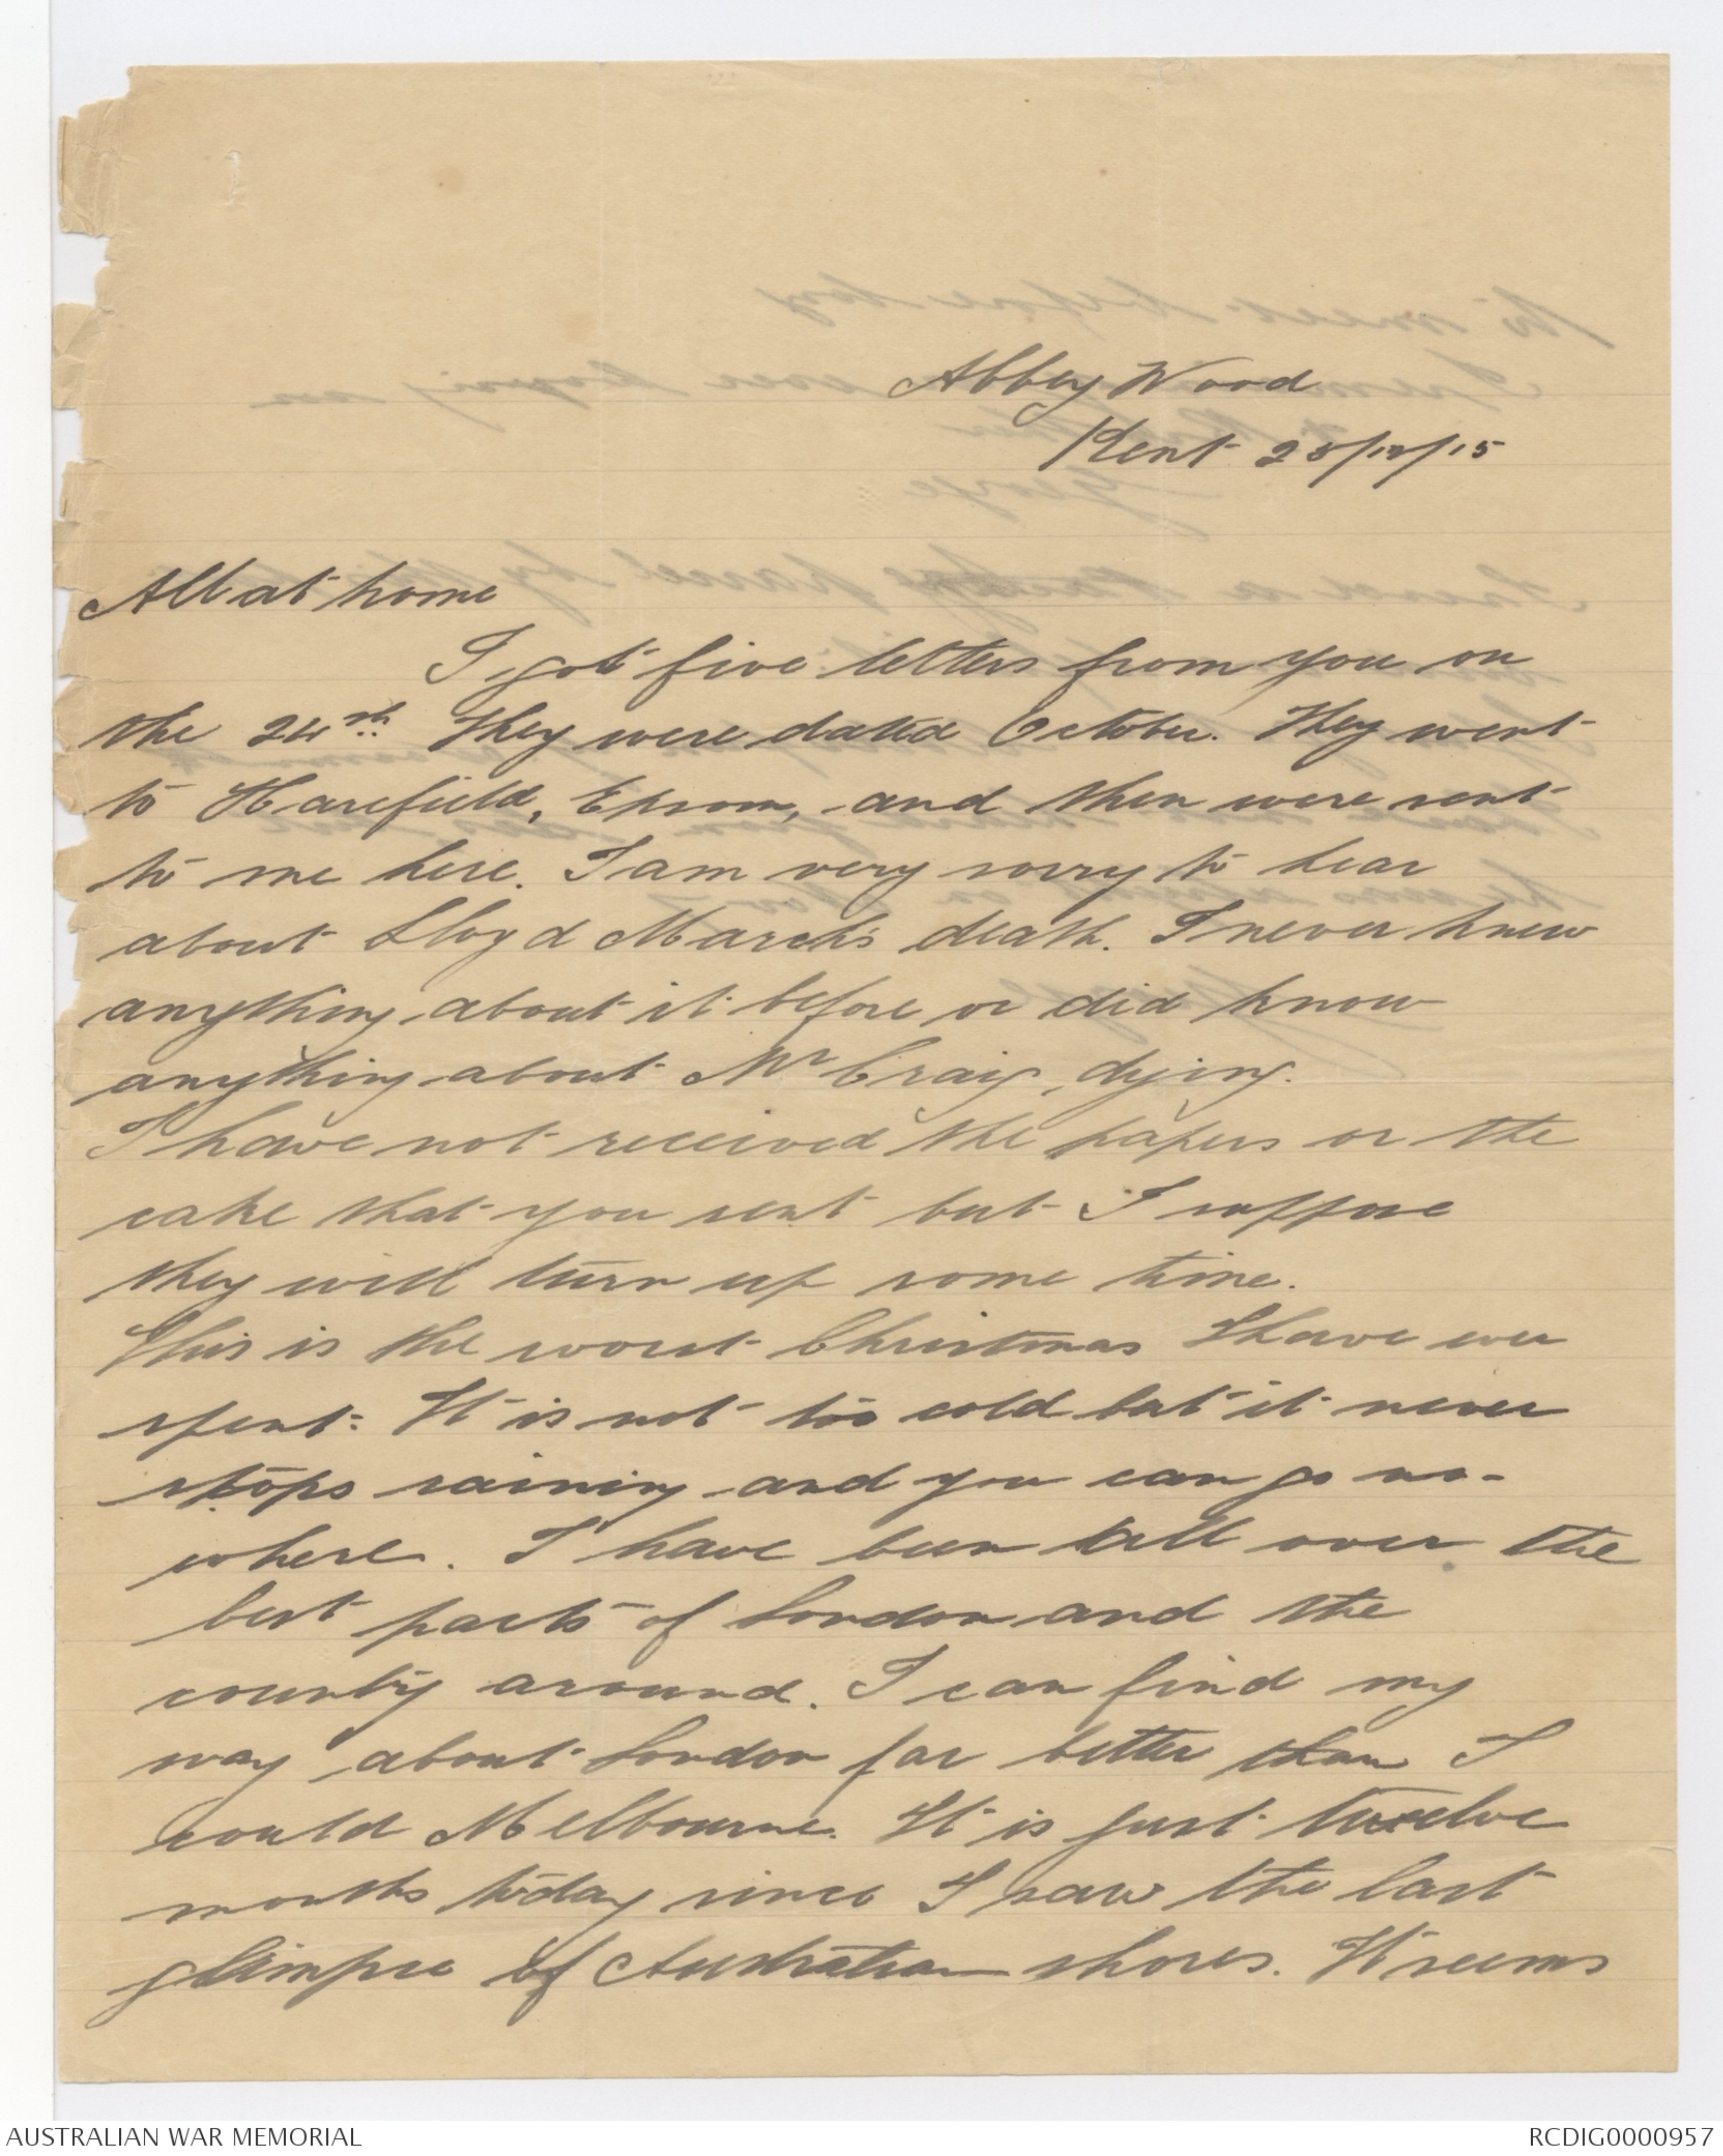 Abbey Wood
Kent 25/12/15
All at home
I got five letters from you on
the 24th. They were dated October. They went
to Harefield, Epsom, and then were sent
to me here. I am very sorry to hear
about Lloyd March's death. I never knew
anything about it before or did know
anything about Mr Craig, dying.
I have not received the papers or the
cake that you sent but I suppose
they will turn up some time.
This is the worst Christmas I have ever
spent. It is not too cold but it never
stops raining and you can go no-
where. I have been all over the
best parts of London and the
county around. I can find my
way about London far better than I
could Melbourne. It is just twelve
months today since I saw the last
glimpse of Australian shores. It seems
AUSTRALIAN WAR MEMORIAL
RCDIG0000957